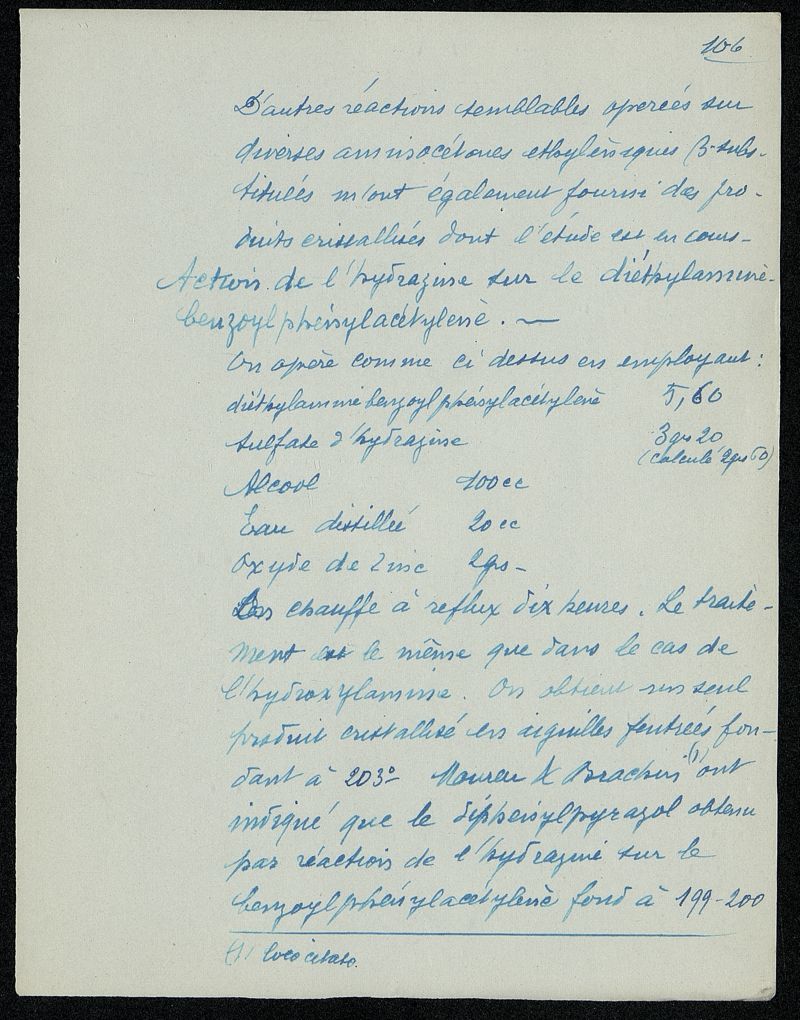 106
D'autres réactions semblables opérées sur
diverses aminocétones ethyléniques β-subs-
tituées m'ont également fourni des pro-
duits cristallisés dont l'étude est en cours-
Action de l'hydrazine sur le diéthylamine-
benzoylphénylacétylène. —
On opère comme ci dessus en employant :
diéthylamine benzoylphénylacétylène 5,60
sulfate d'hydrazine 3grs 20
(calculé 2grs 60)
Alcool 100cc
Eau distillée 20cc
Oxyde de Zinc 2grs-
On chauffe à reflux dix heures. Le traite-
ment est le même que dans le cas de
l'hydroxylamine. On obtient un seul
produit cristallisé en aiguilles feutrées fon-
dant à 203°- Moureu & Brachin (1) ont
indiqué que le diphenylpyrazol obtenu
par réaction de l'hydrazine sur le
benzoylphénylacétylène fond à 199-200
(1) loco citato.